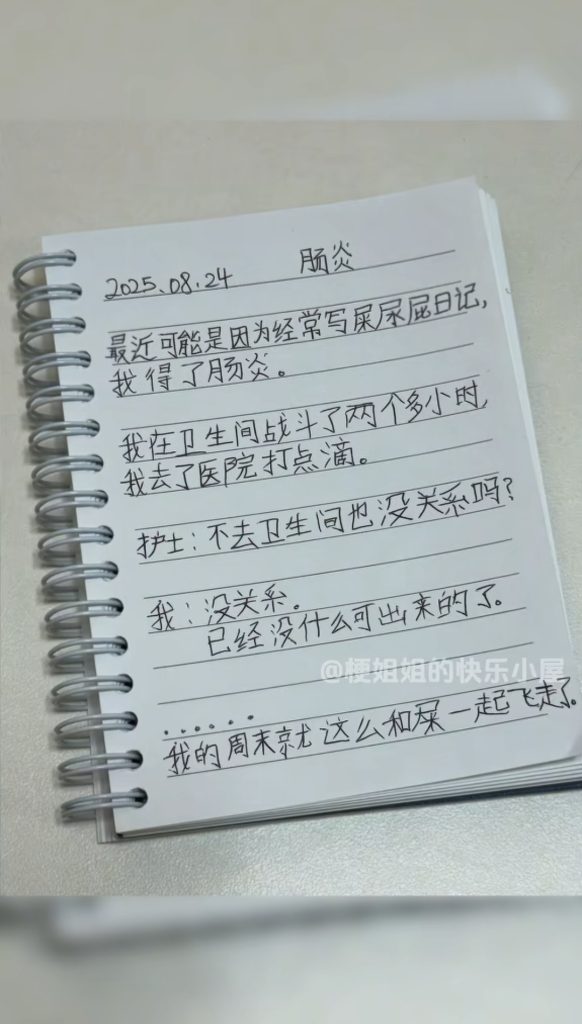 2025.08.24 肠炎
最近可能是因为经常写屎尿屁日记，
我得了肠炎。
我在卫生间战斗了两个多小时，
我去了医院打点滴。
护士：不去卫生间也没关系吗？
我：没关系。
已经没什么可出来的了。
@梗姐姐的快乐小屋
......
我的周末就这么和屎一起飞走了。